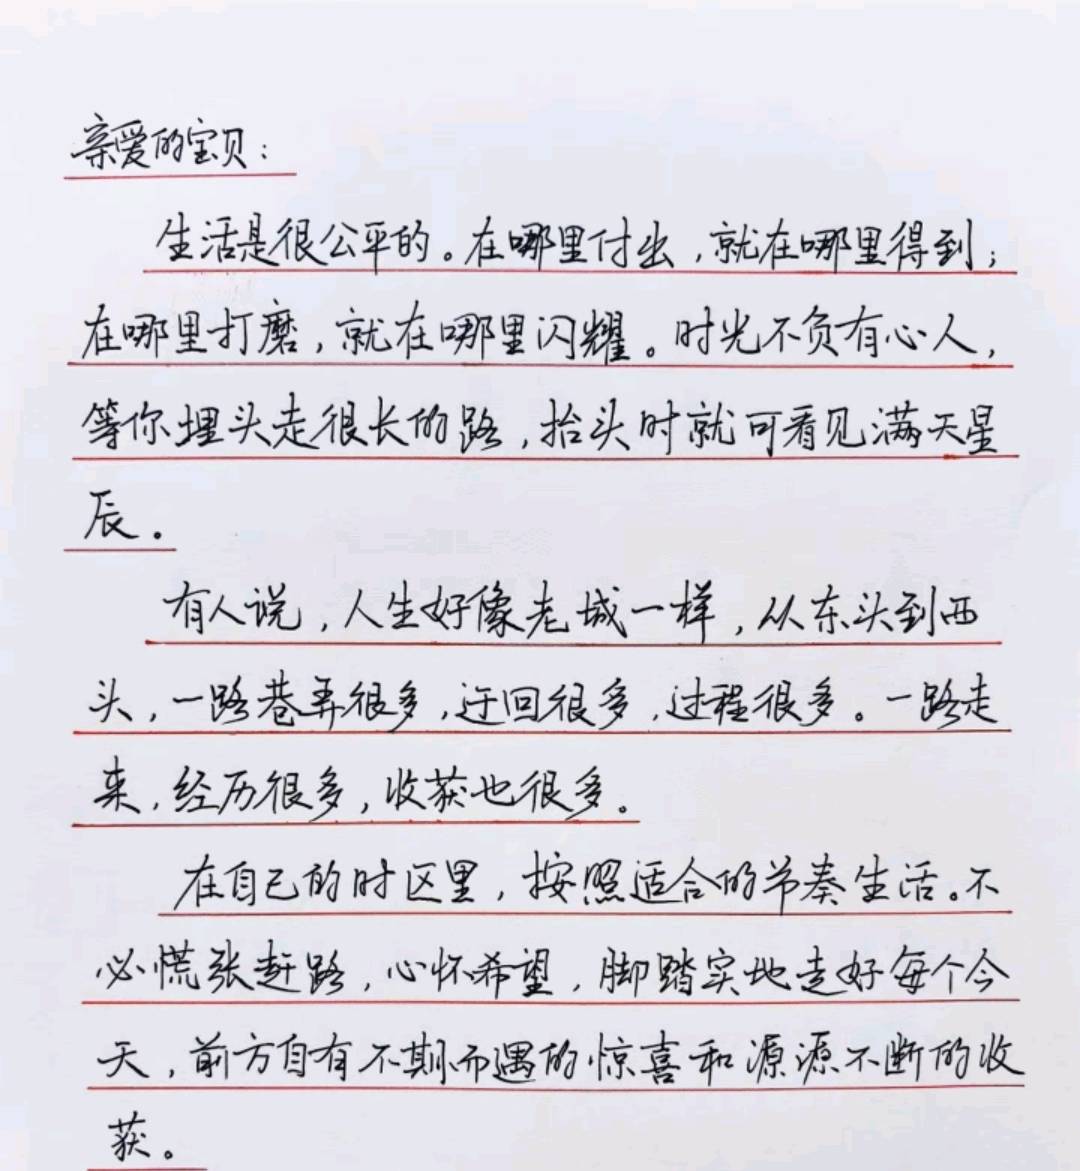 亲爱的宝贝：
生活是很公平的。在哪里付出，就在哪里得到；
在哪里打磨，就在哪里闪耀。时光不负有心人，
等你埋头走很长的路，抬头时就可看见满天星
辰。
有人说，人生好像老城一样，从东头到西
头，一路巷弄很多，迂回很多，过程很多。一路走
来，经历很多，收获也很多。
在自己的时区里，按照适合的节奏生活。不
必慌张赶路，心怀希望，脚踏实地走好每个今
天，前方自有不期而遇的惊喜和源源不断的收
获。